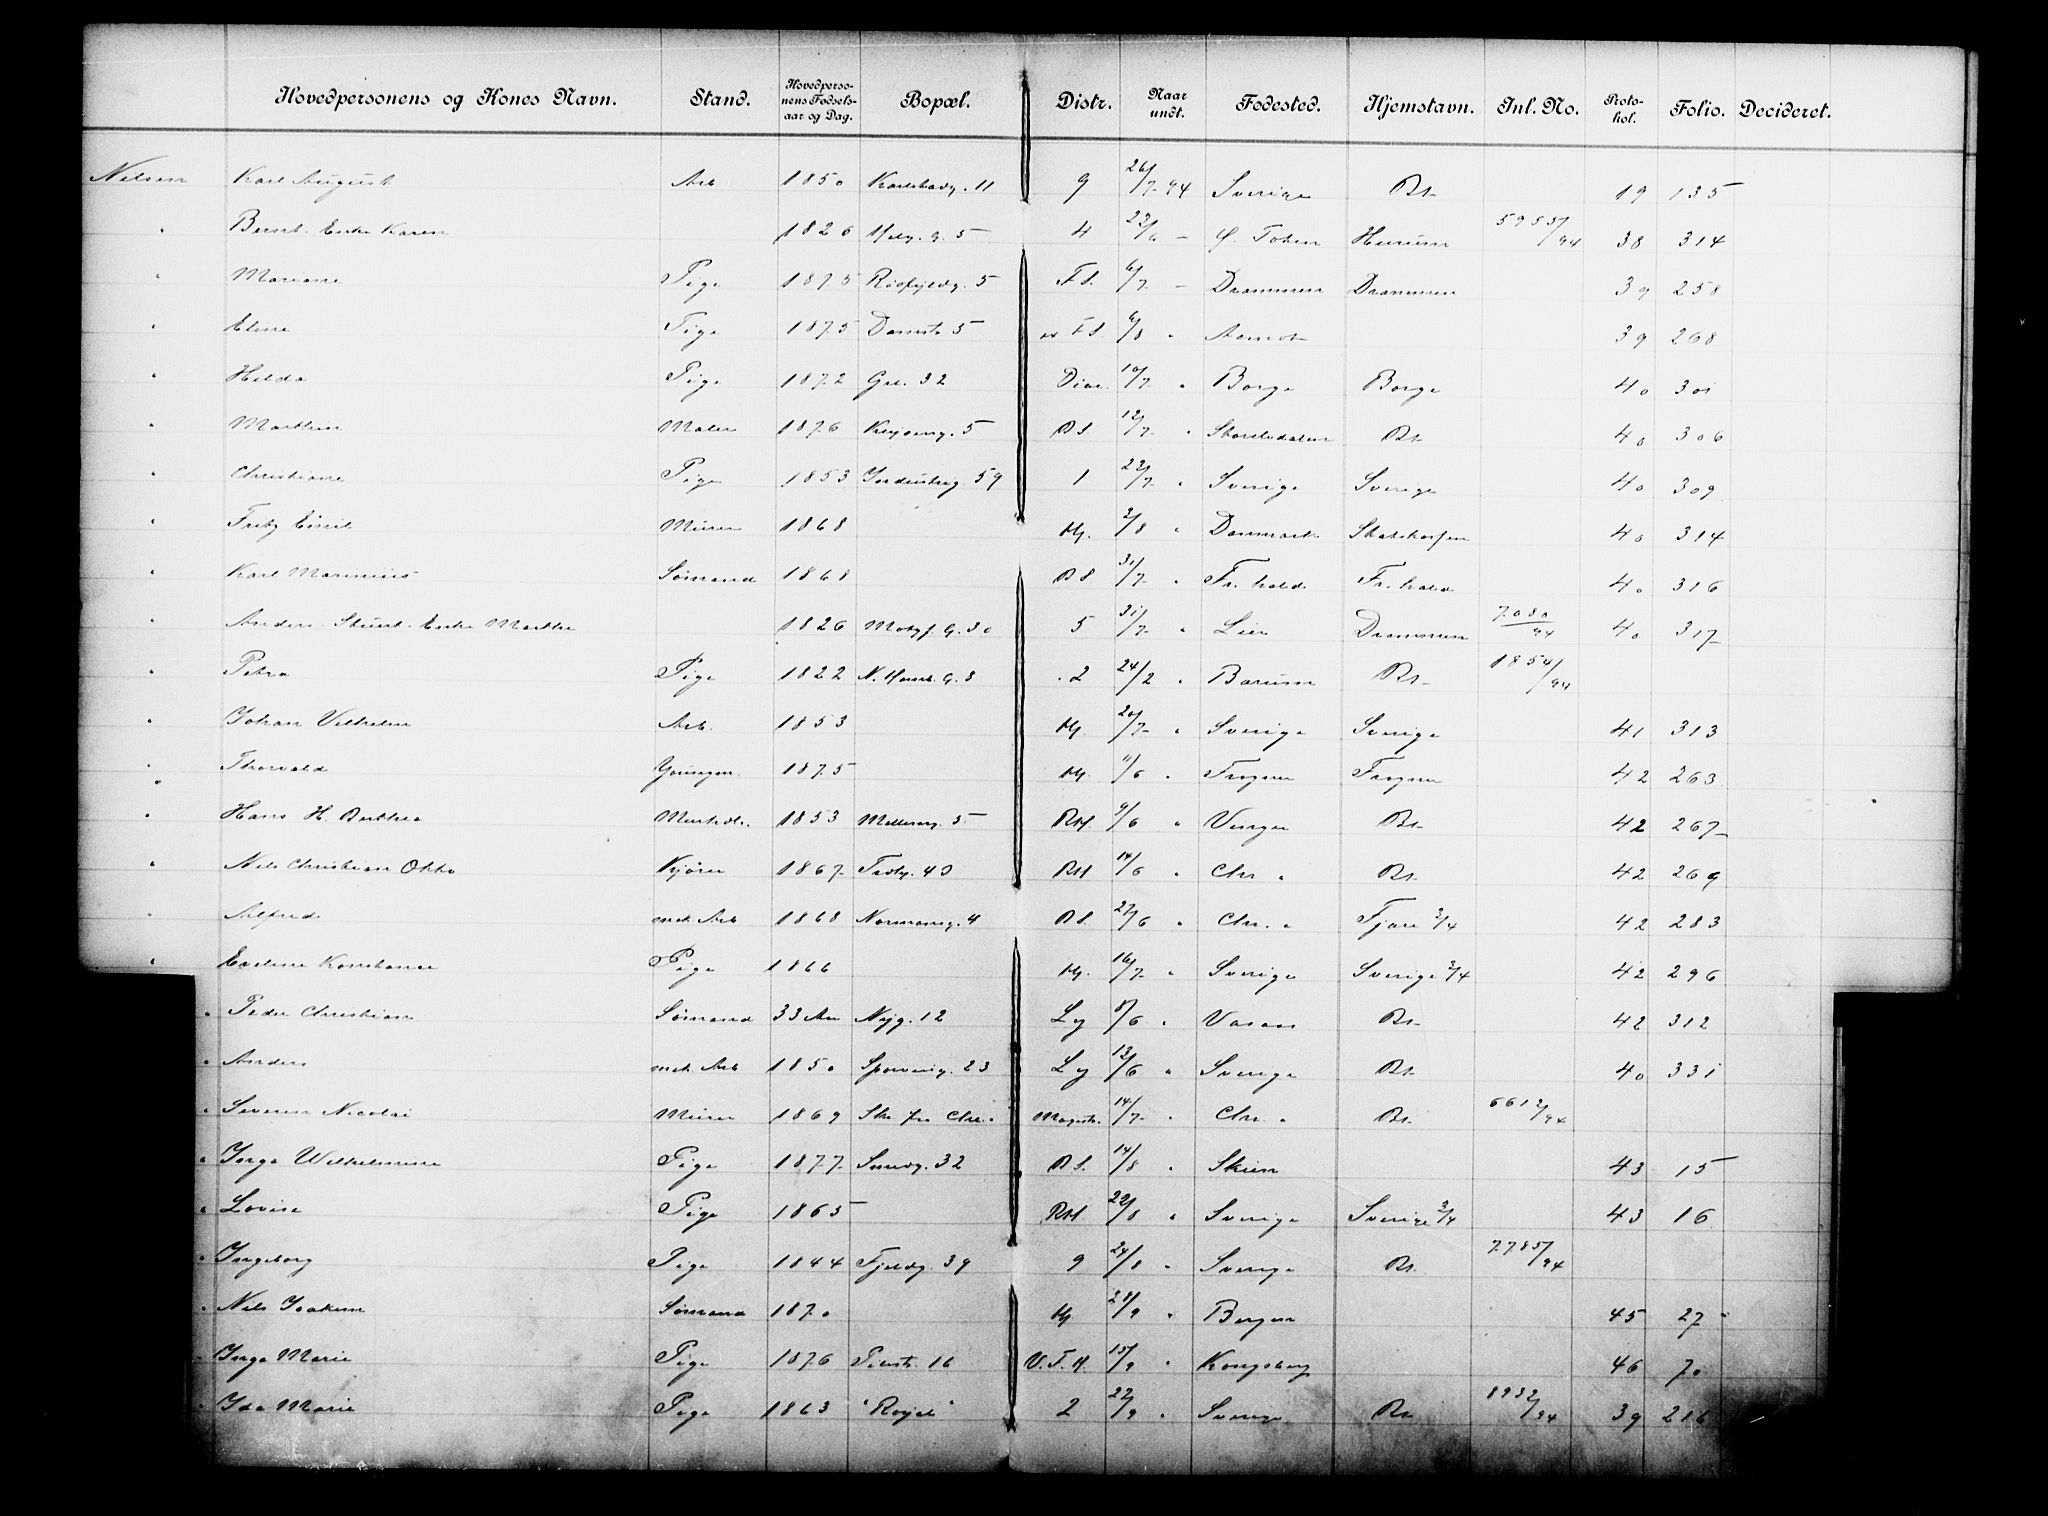 Hovedpersonens og Kones Navn. Stand. Hovedpersonens Fødselsaar og Dag. Bopæl. Distr. Naar undt. Fødested. Hjemstavn. Inl. No. Protokol. Folio. Decideret.
Nilsen Karl August Arb 1850 11 9 26/7 94 Sverige Bt 19 135
" Bernt Enke Karen 1826 5 4 22/6 - Ø. Toten Hurum 5953/94 38 314
" Mariane Pige 1875 5 F.S. 6/7 - Drammen Drammen 39 258
" Eline Pige 1875 Damstr 5 F.S. 6/8 " Aamot 39 268
" Hilda Pige 1872 Grl. 32 10/7 " Borge Borge 40 301
" Marthin Maler 1876 5 B.S. 12/7 " Bt 40 306
" Christiane Pige 1853 59 1 22/7 " Sverige Sverige 40 309
" Fritz Emil Murer 1868 Hj. 2/8 " Danmark 40 314
" Karl Marinius Sømand 1868 B.S 31/7 " Fr. hald Fr. hald 40 316
" Anders Enke Marthe 1826 30 5 31/7 " Lier Drammen 7080/94 40 317
" Petra Pige 1822 8 2 24/2 " Bærum Bt 1854/94
" Johan Vilhelm Arb. 1853 Hj. 20/7 " Sverige Sverige 41 313
" Thorvald 1875 Hj. 11/6 " Frogner Frogner 42 263
" Hans H. Berthea 1853 Møllerg. 5 RH. 9/6 " Vinger Bt 42 267
" Nils Christian Otto Kjører 1867 40 RH 14/6 " Chr " Bt 42 269
" Alfred mek Arb 1868 Normansg. 4 B.S. 27/6 " Chr. " Fjære 2/4 42 283
" Eveline Konstance Pige 1866 Hj. 16/7 " Sverige Sverige 3/4 42 296
" Peder Christian Sømand 33 Aar Nyg. 12 Ly 8/6 " Bt 42 312
" Anders mek Arb 1850 Sporveisg. 23 Ly 13/6 " Sverige Bt 40 331
" Severin Nicolai Murer 1869 Magistr. 14/7 " Chr. " Bt 6612/94
" Inga Wilhelmine Pige 1877 Smedg. 32 B.S. 14/8 " Skien 43 15
" Lovise Pige 1865 RH. 22/8 " Sverige Sverige 3/4 43 16
" Ingeborg Pige 1844 Fjeldg. 39 9 24/8 " Sverige Bt. 7785/94
" Nils Joakim Sømand 1870 Hj 28/9 " Bergen 45 27
" Inga Marie Pige 1876 16 V.F.H. 15/9 " Kongsberg 46 70
" Ida Marie Pige 1863 2 22/9 " Sverige Bt 8932/94 39 216